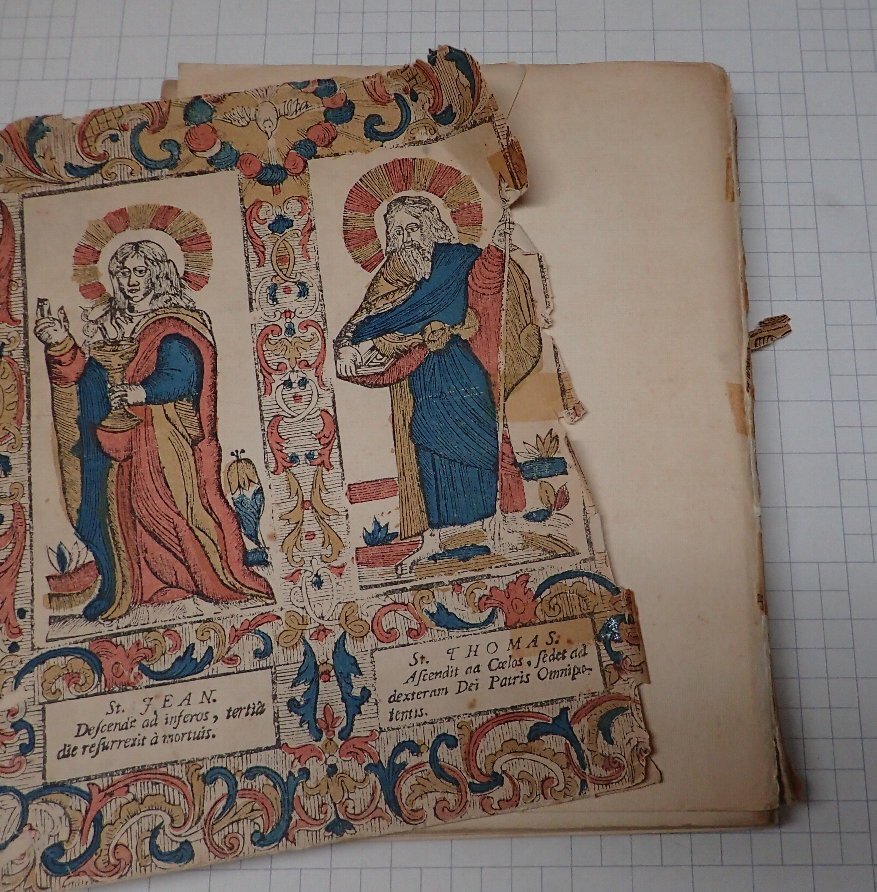 St. JEAN.
Deſcendit ad inferos, tertiâ
die reſurrexit à mortuis.
St. THOMAS.
Aſcendit ad Cœlos, ſedet ad
dexteram Dei Patris Omnipo-
tentis.